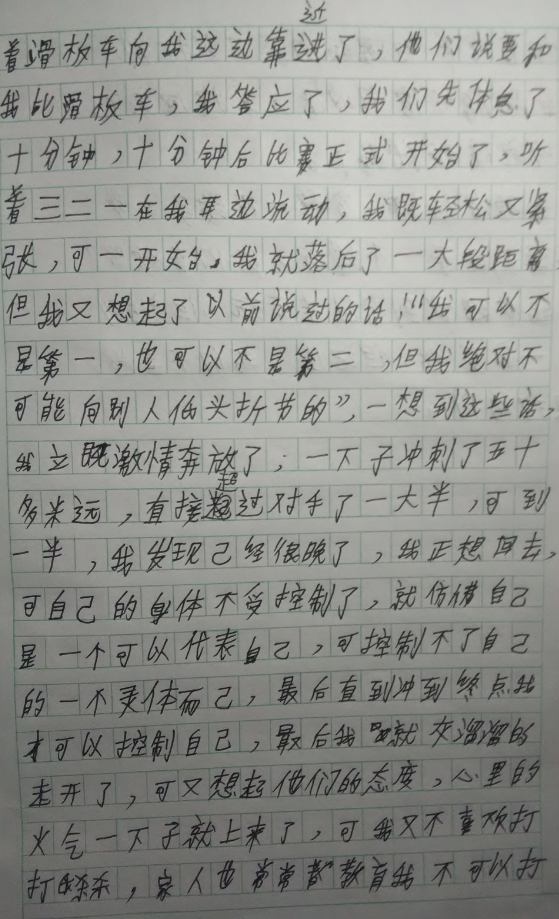 过
着滑板车向我这边靠进了，他们说要和
我比滑板车，我答应了，我们先休息了
十分钟，十分钟后比赛正式开始了，听
着三二一在我耳边流动，我既轻松又紧
张，可一开始，我就落后了一大段距离
但我又想起了以前说过的话！“我可以不
是第一，也可以不是第二，但我绝对不
可能向别人低头折节的”，一想到这些话，
我立既激情奔放了；一下子冲刺了五十
超
多米远，直接超过对手了一大半，可到
一半，我发现已经很晚了，我正想回去，
可自己的身体不受控制了，就仿借自己
是一个可以代表自己，可控制不了自己
的一个灵体而已，最后直到冲到终点我
才可以控制自己，最后我就灰溜溜的
走开了，可又想起他们的态度，心里的
火气一下子就上来了，可我又不喜欢打
打杀杀，家人也常常教育我不可以打